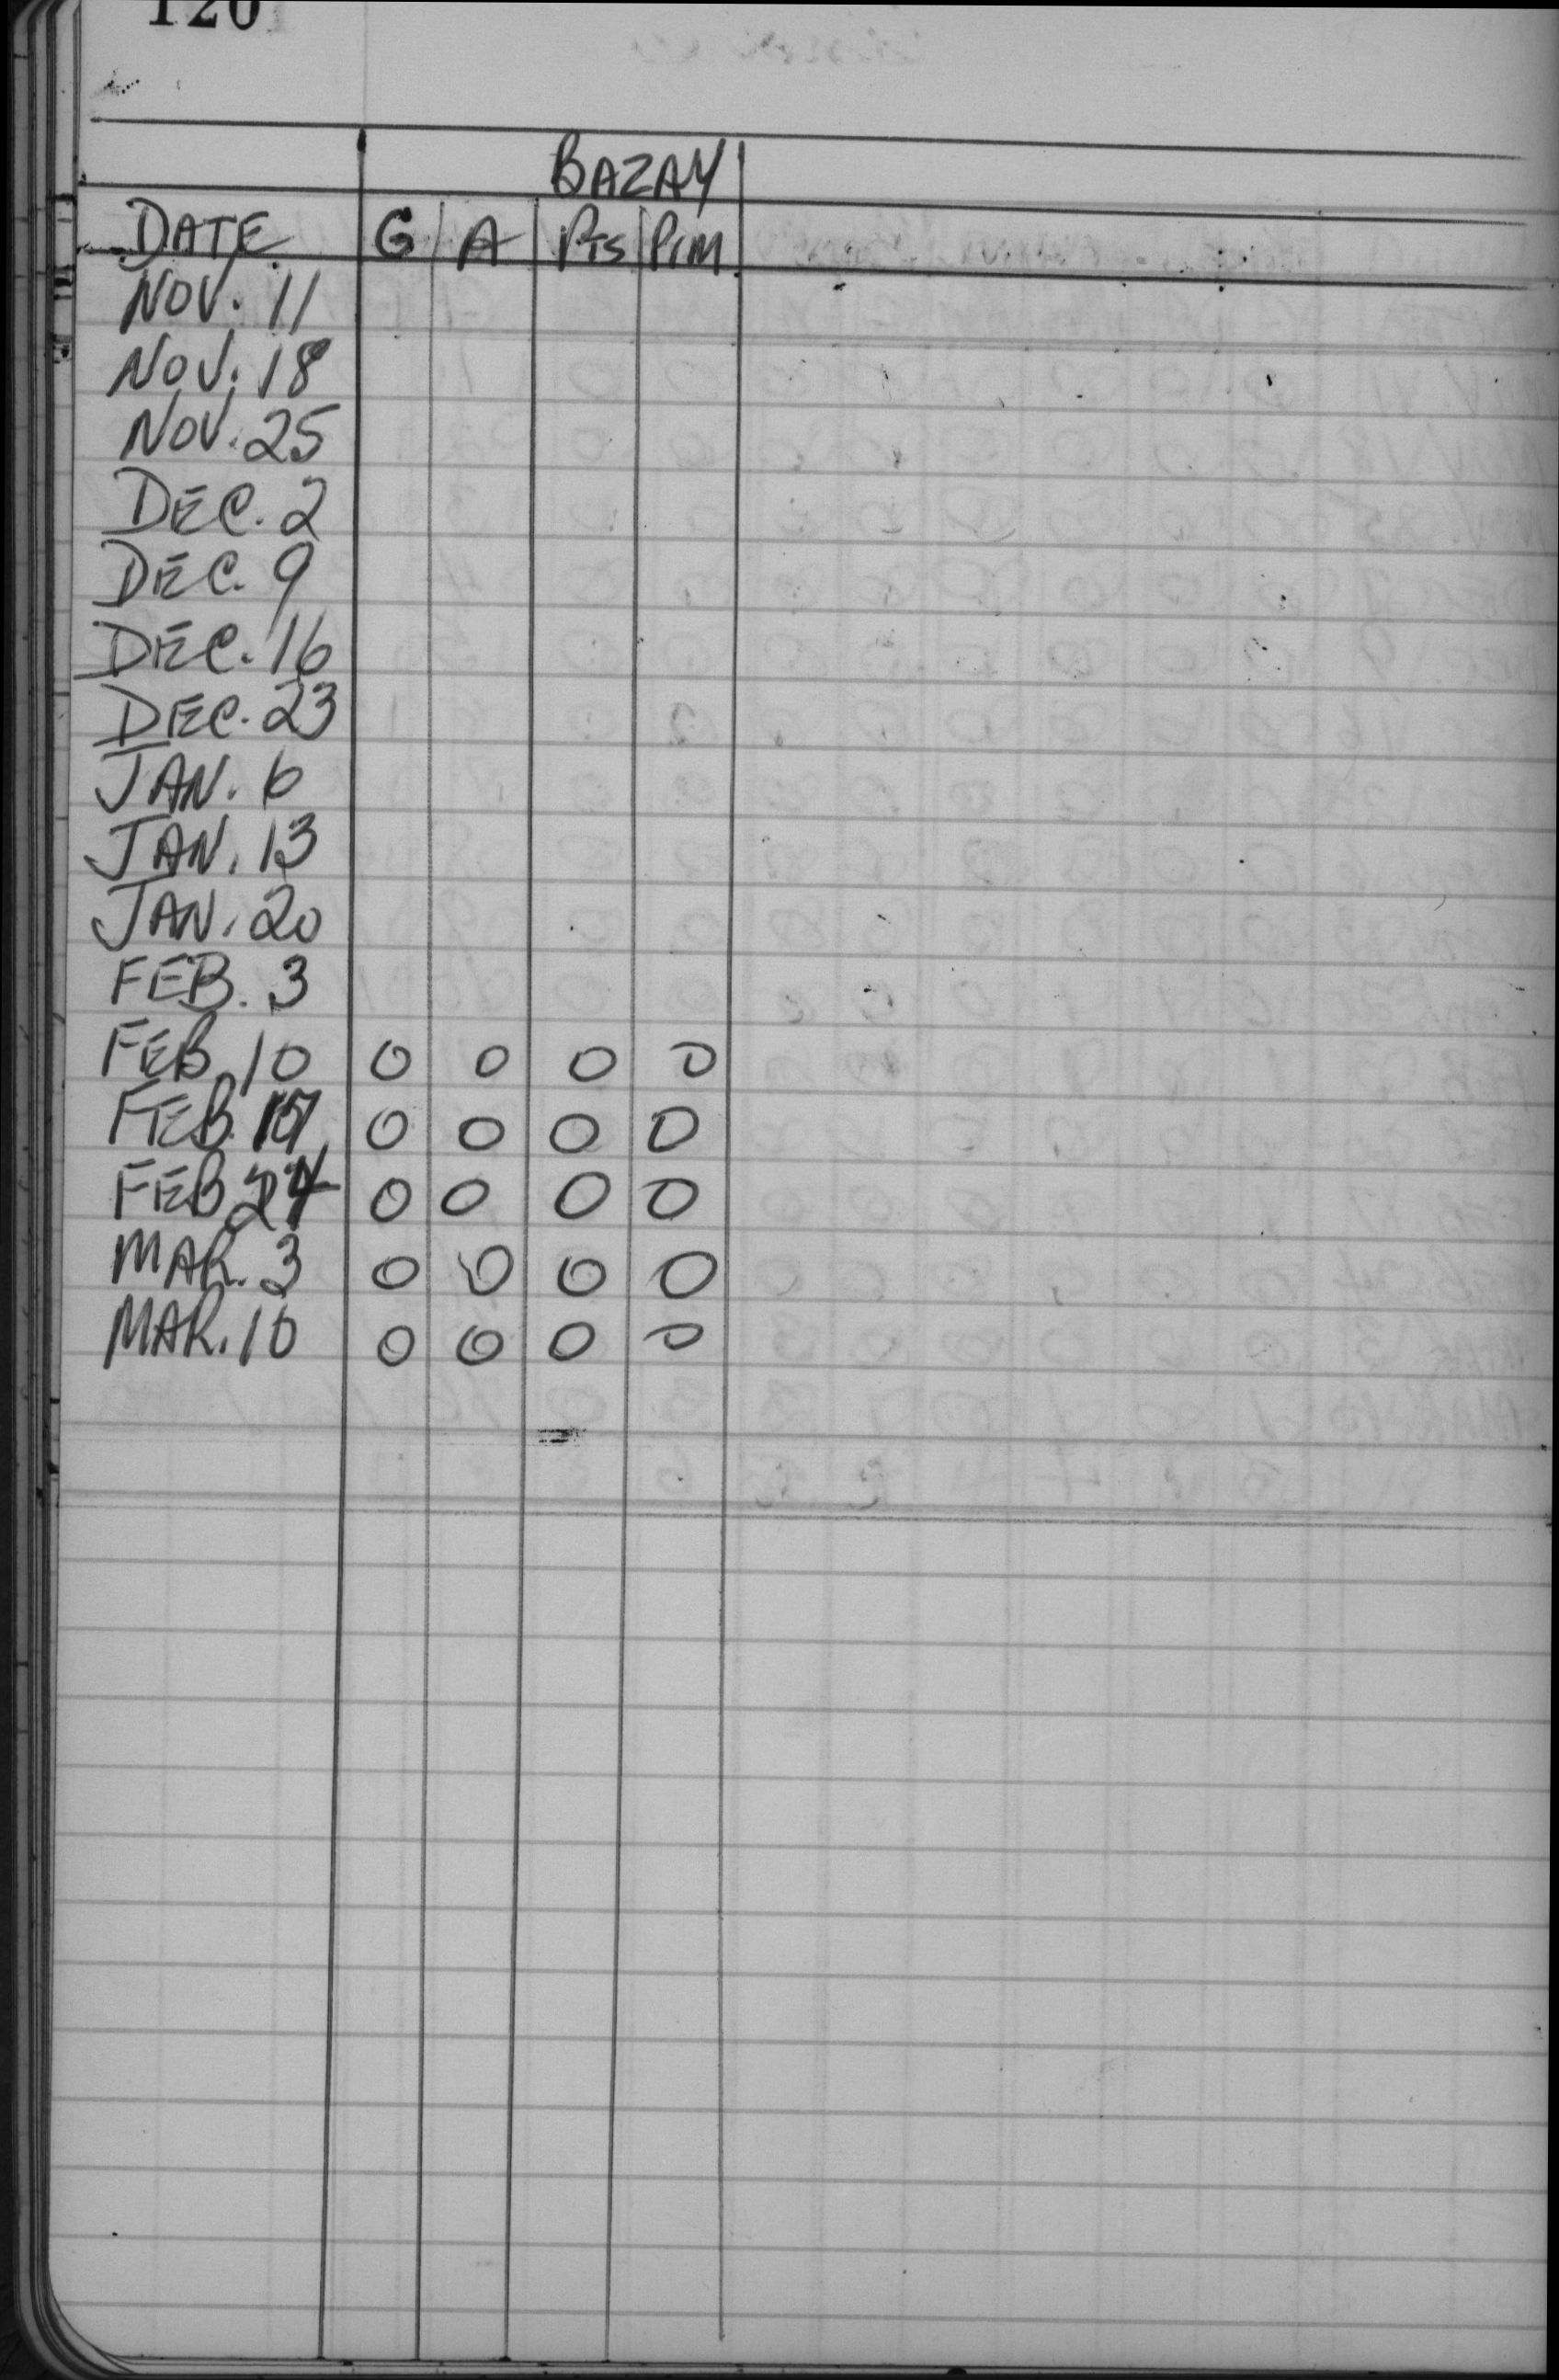 120
BAZAY
DATE G A PTS PIM
NOV. 11
NOV. 18
NOV. 25
DEC. 2
DEC. 9
DEC. 16
DEC. 23
JAN. 6
JAN. 13
JAN. 20
FEB. 3
FEB. 10 0 0 0 0
FEB. 17 0 0 0 0
FEB 24 0 0 0 0
MAR. 3 0 0 0 0
MAR. 10 0 0 0 0